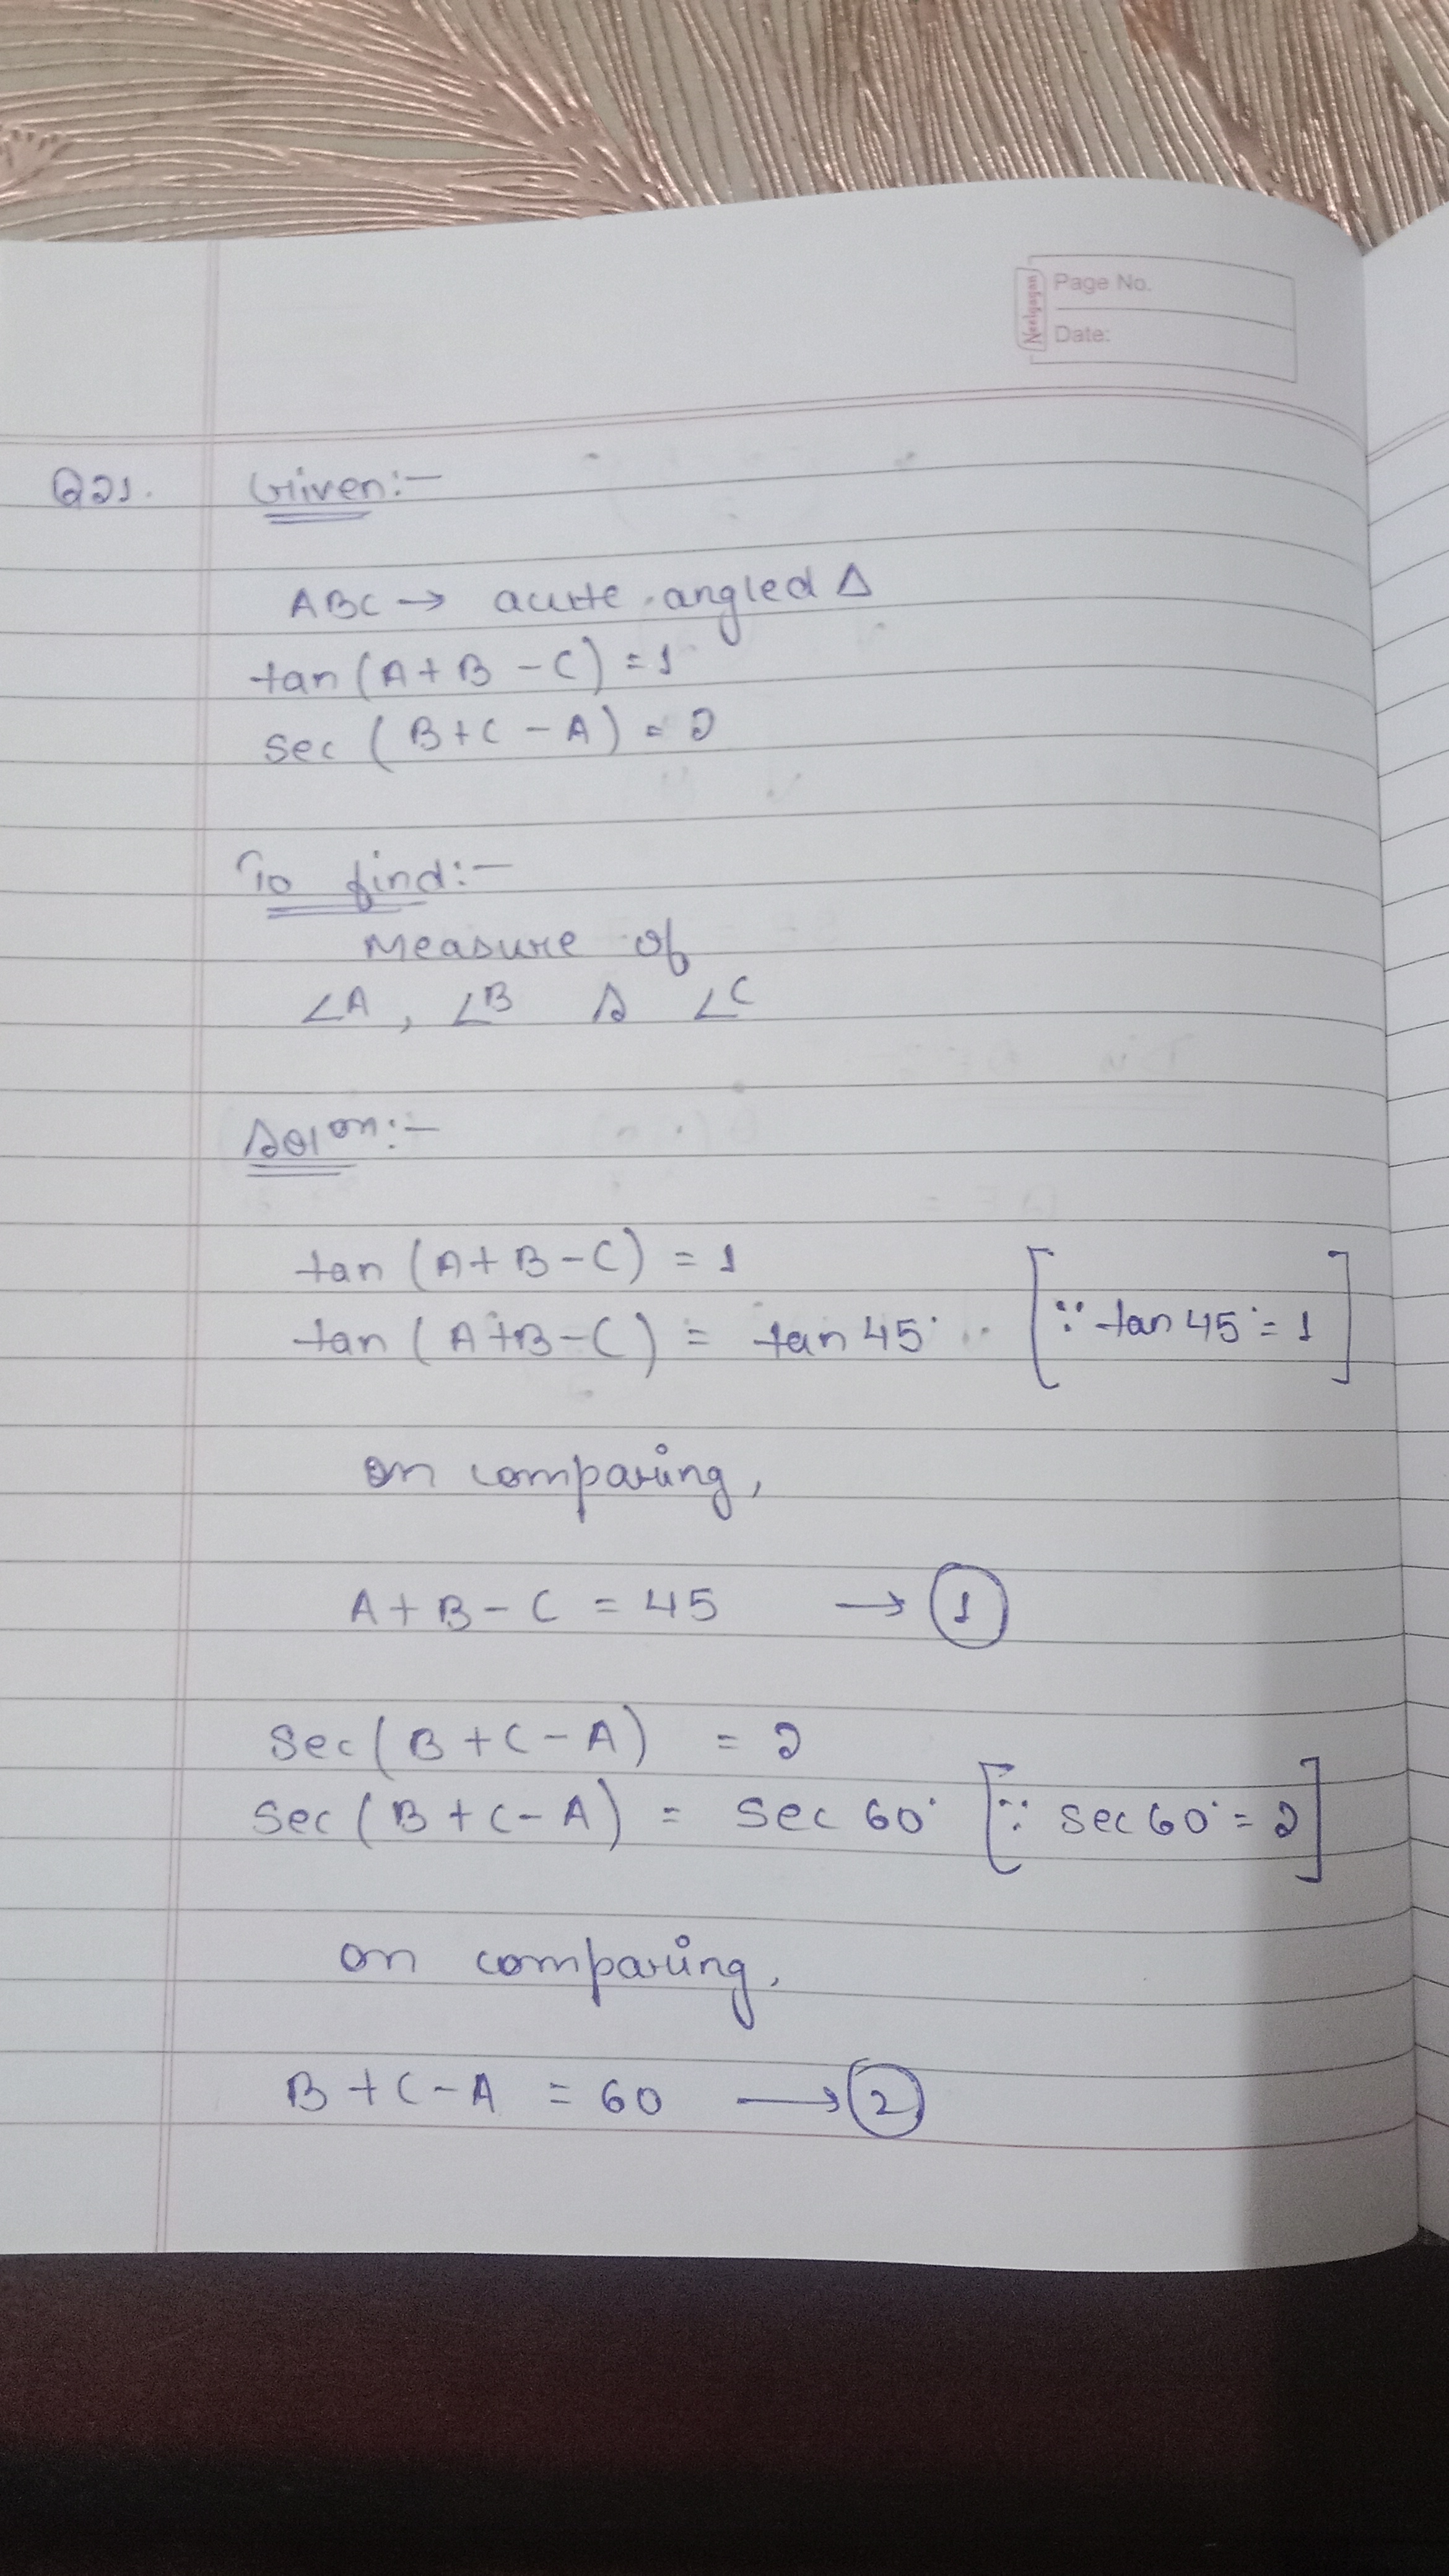 Neelgagan
Page No.
Date:
Q21. Given:-
ABC → acute angled Δ
tan (A+B-C) = 1
sec (B+C-A) = 2
To find:-
Measure of
∠A, ∠B & ∠C
Solon:-
tan (A+B-C) = 1
tan (A+B-C) = tan 45° [∵ tan 45° = 1]
on comparing,
A+B-C = 45 → ①
sec (B+C-A) = 2
sec (B+C-A) = sec 60° [∵ sec 60° = 2]
on comparing,
B+C-A = 60 → ②